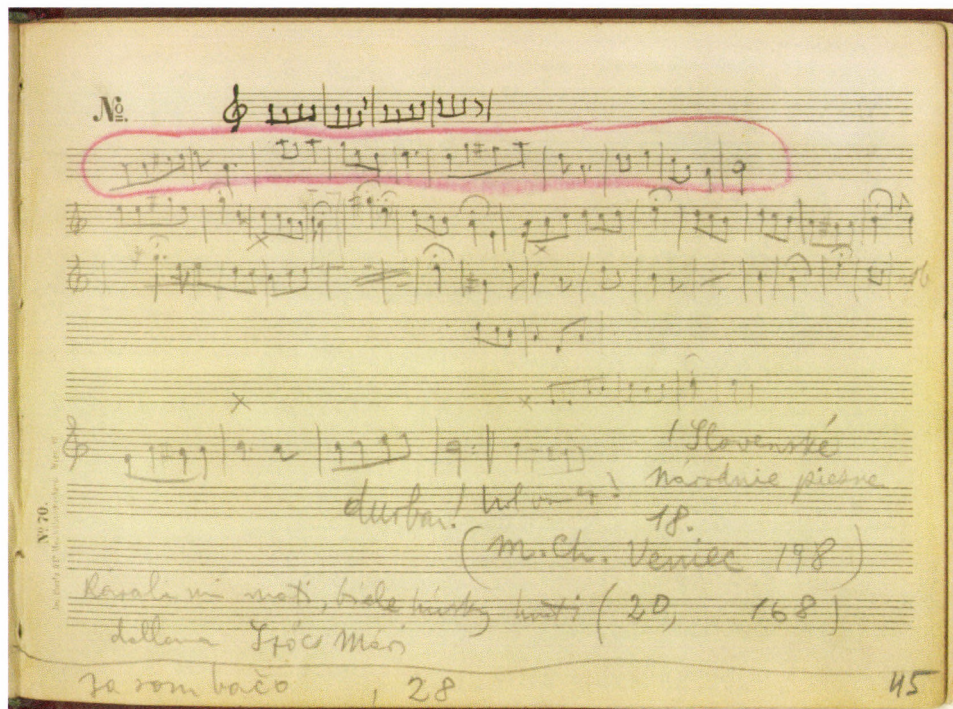 No.
! Slovenské
národnie piesne
durban!
18.
(M. Ch. Veniec 198)
No 70.
Kázala mi mati, biele húsky hnati (20, 168)
dallama Szőcs Mári
Ja som bačo, 28
45